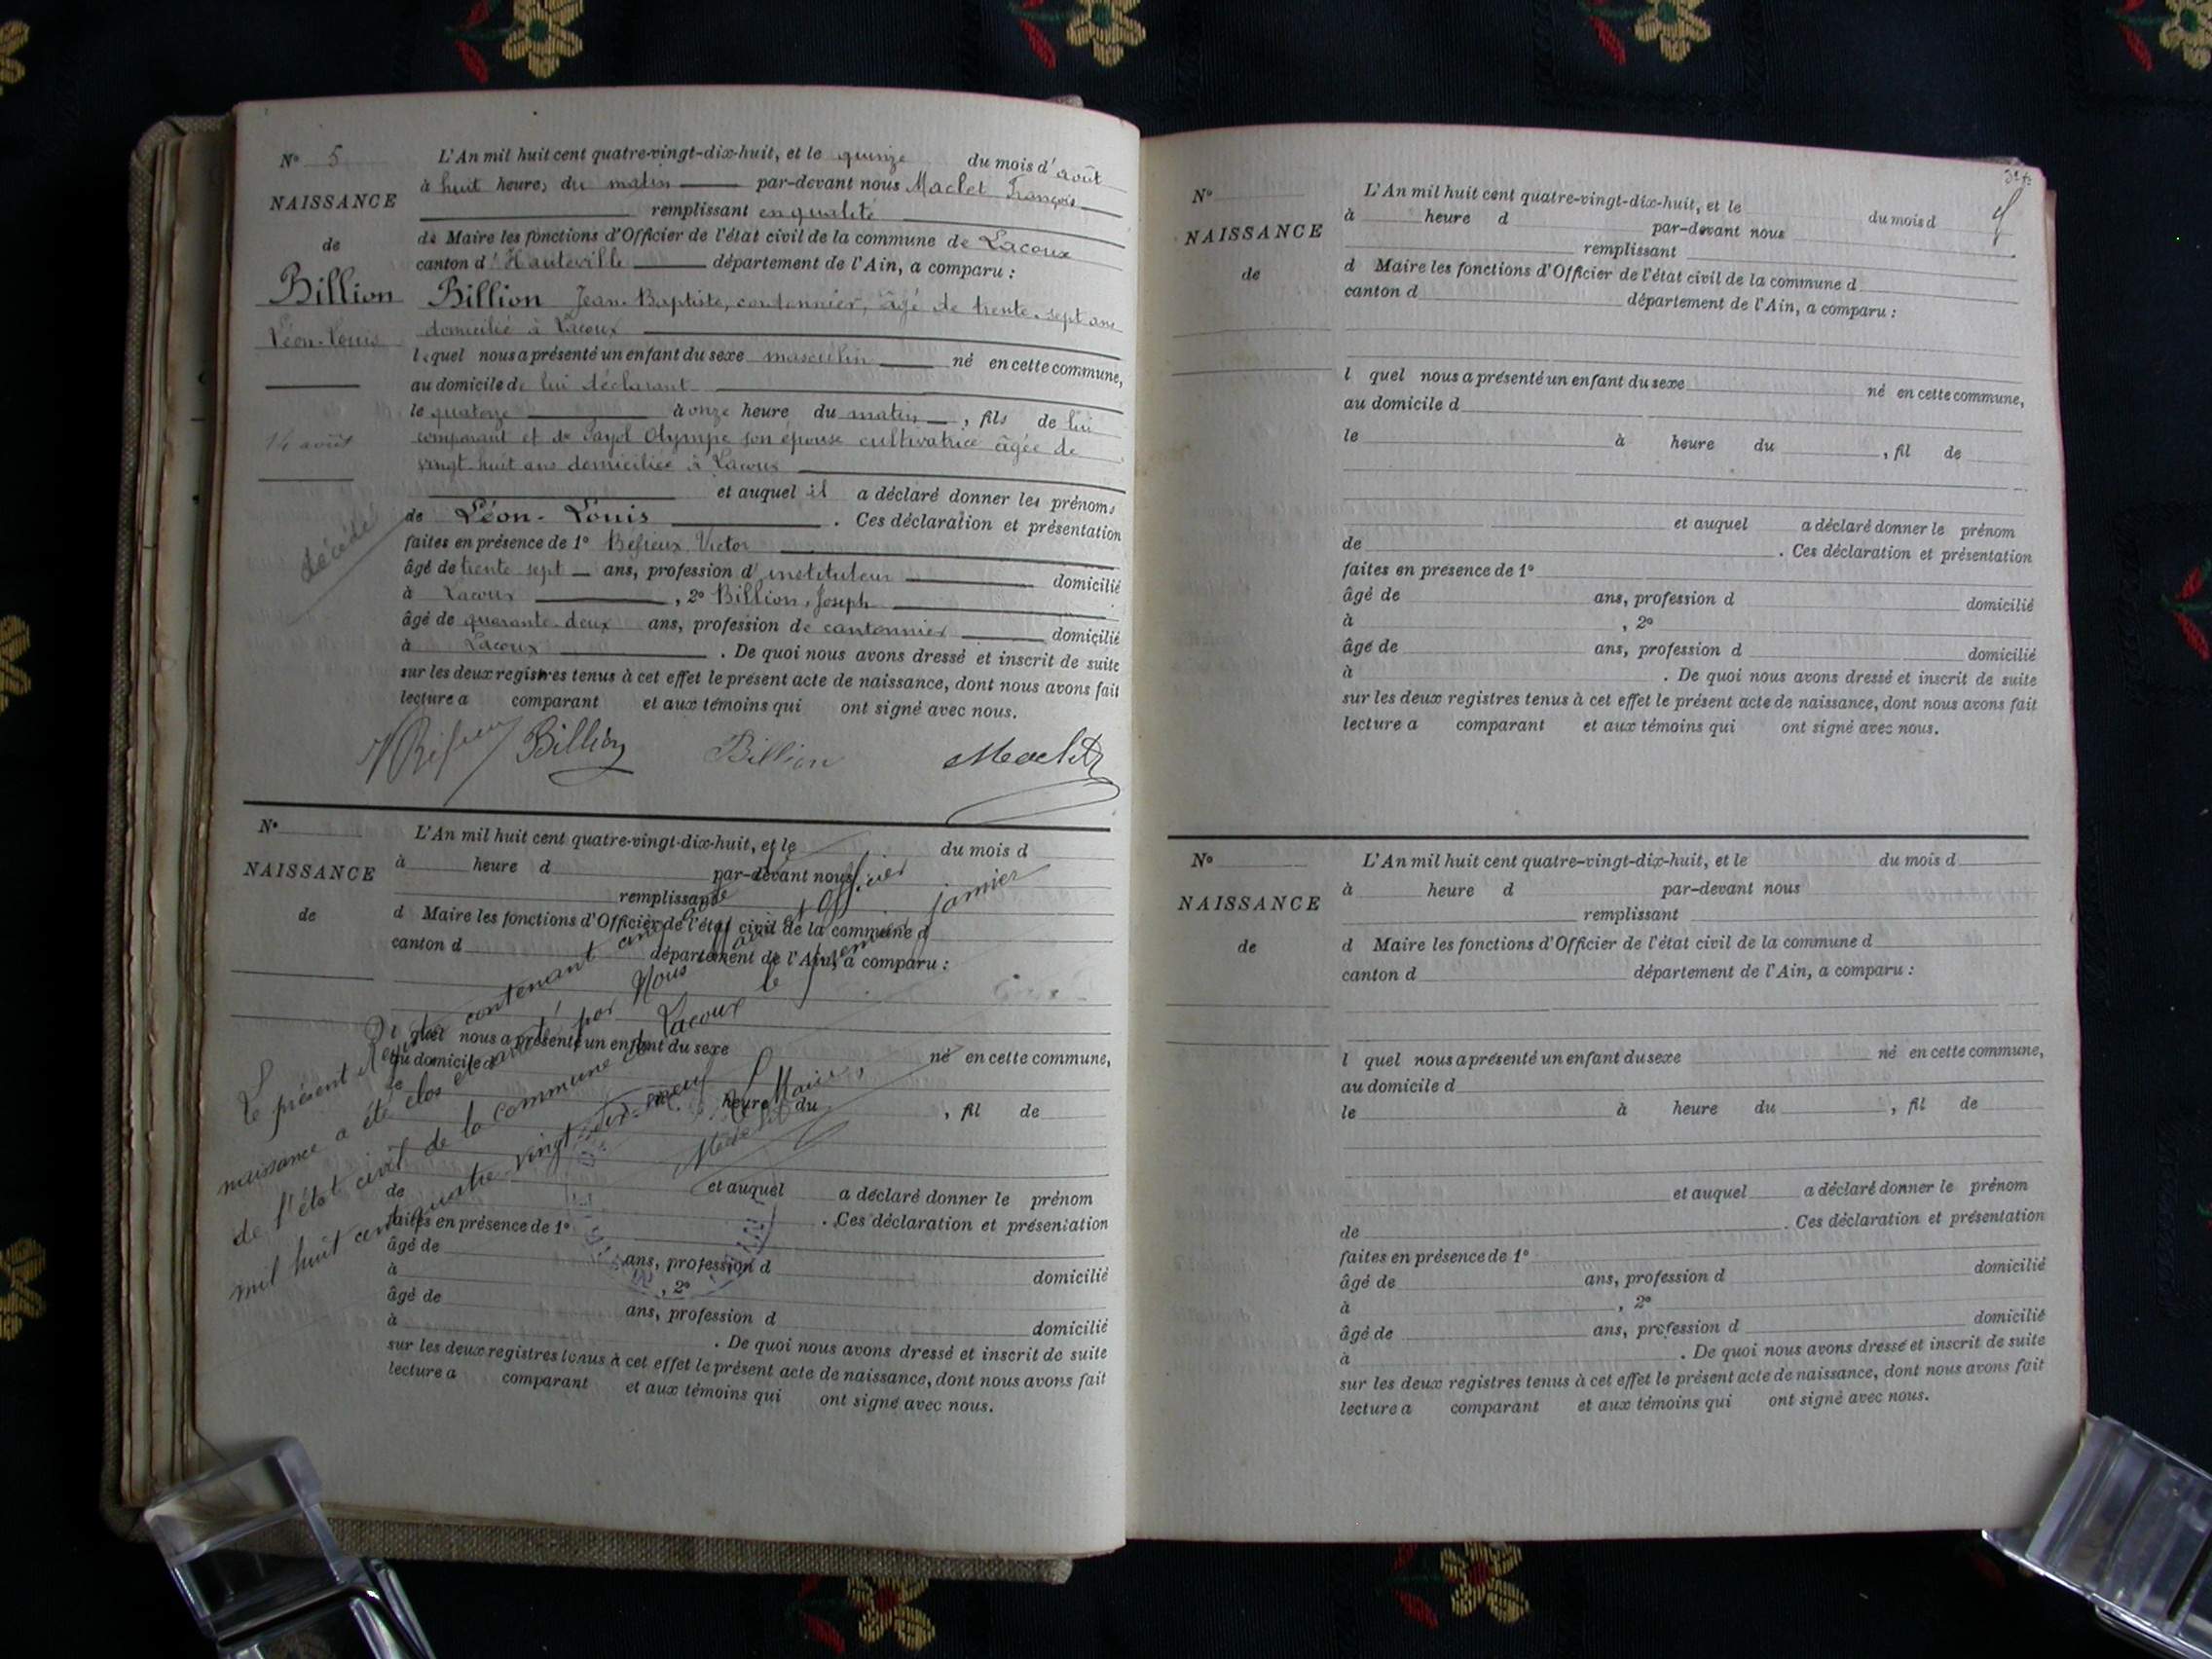 N° 5
NAISSANCE
de
Billion
Léon-Louis
14 août
décédé
L'An mil huit cent quatre-vingt-dix-huit, et le quinze du mois d'août
à huit heures du matin par-devant nous Maclet François
remplissant en qualité
de Maire les fonctions d'Officier de l'état civil de la commune de Lacoux
canton d'Hauteville département de l'Ain, a comparu :
Billion Jean-Baptiste, cordonnier, âgé de trente-sept ans
domicilié à Lacoux
lequel nous a présenté un enfant du sexe masculin né en cette commune,
au domicile de lui déclarant
le quatorze à onze heure du matin, fils de lui
comparant et de Payol Olympe son épouse cultivatrice âgée de
vingt-huit ans domiciliée à Lacoux
et auquel il a déclaré donner les prénoms
de Léon-Louis. Ces déclaration et présentation
faites en présence de 1° Victor
âgé de trente sept ans, profession d'instituteur domicilié
à Lacoux, 2° Billion, Joseph
âgé de quarante-deux ans, profession de cantonnier domicilié
à Lacoux. De quoi nous avons dressé et inscrit de suite
sur les deux registres tenus à cet effet le présent acte de naissance, dont nous avons fait
lecture a comparant et aux témoins qui ont signé avec nous.
Billion Billion Maclet
N°
NAISSANCE
de
L'An mil huit cent quatre-vingt-dix-huit, et le du mois d
à heure d par-devant nous
remplissant
d Maire les fonctions d'Officier de l'état civil de la commune d
canton d département de l'Ain, a comparu :
l quel nous a présenté un enfant du sexe né en cette commune,
au domicile d
le à heure du , fil de
et auquel a déclaré donner le prénom
de . Ces déclaration et présentation
faites en présence de 1°
âgé de ans, profession d domicilié
à , 2°
âgé de ans, profession d domicilié
à . De quoi nous avons dressé et inscrit de suite
sur les deux registres tenus à cet effet le présent acte de naissance, dont nous avons fait
lecture a comparant et aux témoins qui ont signé avec nous.
Le présent Registre contenant cinq actes de
naissance a été clos et arrêté par Nous Maire et Officier
de l'état civil de la commune de Lacoux le premier janvier
mil huit cent quatre vingt-dix-neuf
Le Maire,
Maclet
N°
NAISSANCE
de
L'An mil huit cent quatre-vingt-dix-huit, et le du mois d
à heure d par-devant nous
remplissant
d Maire les fonctions d'Officier de l'état civil de la commune d
canton d département de l'Ain, a comparu :
l quel nous a présenté un enfant du sexe né en cette commune,
au domicile d
le à heure du , fil de
et auquel a déclaré donner le prénom
de . Ces déclaration et présentation
faites en présence de 1°
âgé de ans, profession d domicilié
à , 2°
âgé de ans, profession d domicilié
à . De quoi nous avons dressé et inscrit de suite
sur les deux registres tenus à cet effet le présent acte de naissance, dont nous avons fait
lecture a comparant et aux témoins qui ont signé avec nous.
N°
NAISSANCE
de
L'An mil huit cent quatre-vingt-dix-huit, et le du mois d
à heure d par-devant nous
remplissant
d Maire les fonctions d'Officier de l'état civil de la commune d
canton d département de l'Ain, a comparu :
l quel nous a présenté un enfant du sexe né en cette commune,
au domicile d
le à heure du , fil de
et auquel a déclaré donner le prénom
de . Ces déclaration et présentation
faites en présence de 1°
âgé de ans, profession d domicilié
à , 2°
âgé de ans, profession d domicilié
à . De quoi nous avons dressé et inscrit de suite
sur les deux registres tenus à cet effet le présent acte de naissance, dont nous avons fait
lecture a comparant et aux témoins qui ont signé avec nous.